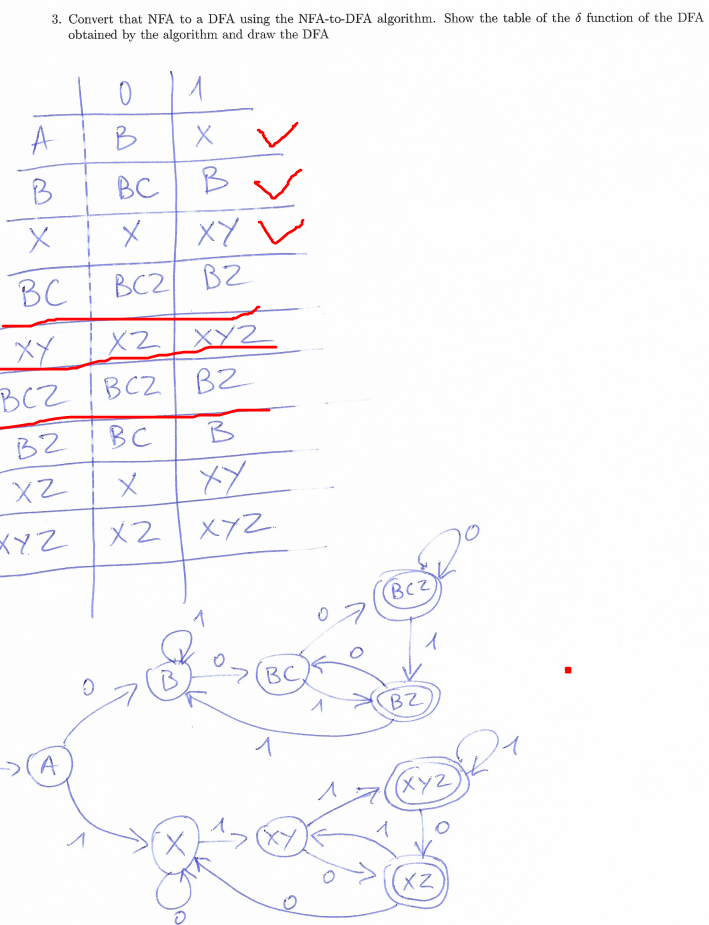 3. Convert that NFA to a DFA using the NFA-to-DFA algorithm. Show the table of the δ function of the DFA
obtained by the algorithm and draw the DFA
0 1
A B X
B BC B
X X XY
BC BCZ BZ
XY XZ XYZ
BCZ BCZ BZ
BZ BC B
XZ X XY
XYZ XZ XYZ
0
BCZ
0
1
1
B
0
BC
0
1
BZ
0
1
A
1
XYZ
1
1
X
1
XY
1
0
0
XZ
0
0